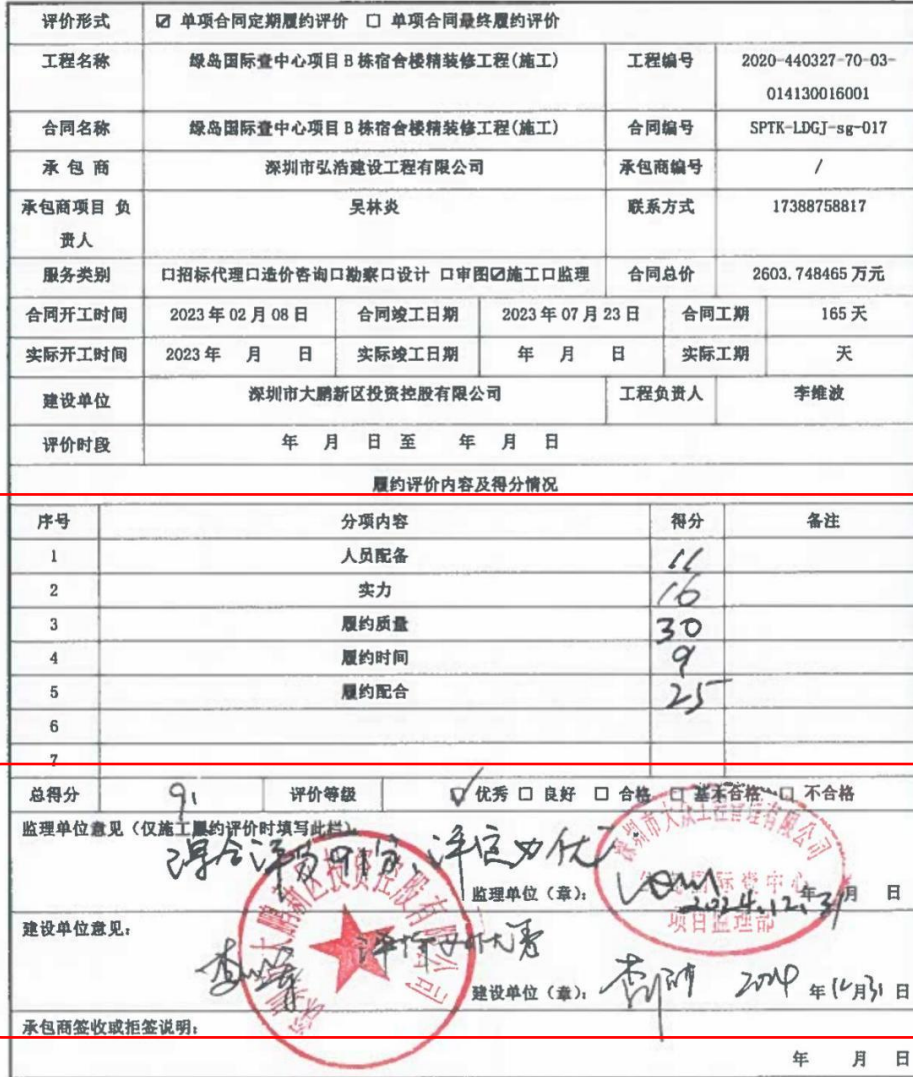 评价形式 ☑ 单项合同定期履约评价 □ 单项合同最终履约评价
工程名称 绿岛国际壹中心项目 B 栋宿舍楼精装修工程(施工) 工程编号 2020-440327-70-03-
014130016001
合同名称 绿岛国际壹中心项目 B 栋宿舍楼精装修工程(施工) 合同编号 SPTK-LDGJ-sg-017
承 包 商 深圳市弘浩建设工程有限公司 承包商编号 /
承包商项目 负 吴林炎 联系方式 17388758817
责人
服务类别 口招标代理口造价咨询口勘察口设计 口审图☑施工口监理 合同总价 2603.748465 万元
合同开工时间 2023 年 02 月 08 日 合同竣工日期 2023 年 07 月 23 日 合同工期 165 天
实际开工时间 2023 年 月 日 实际竣工日期 年 月 日 实际工期 天
建设单位 深圳市大鹏新区投资控股有限公司 工程负责人 李维波
评价时段 年 月 日 至 年 月 日
履约评价内容及得分情况
序号 分项内容 得分 备注
1 人员配备 11
2 实力 16
3 履约质量 30
4 履约时间 9
5 履约配合 25
6
7
总得分 91 评价等级 ☑ 优秀 口 良好 口 合格 口 基本合格 口 不合格
监理单位意见（仅施工履约评价时填写此栏）
综合评分91分、评定为优
深圳市大众工程管理有限公司
监理单位（章）： 2024.12.31 年 月 日
项目监理部
建设单位意见：
深圳市大鹏新区投资控股有限公司
建设单位（章）： 2024 年12月31 日
承包商签收或拒签说明：
年 月 日